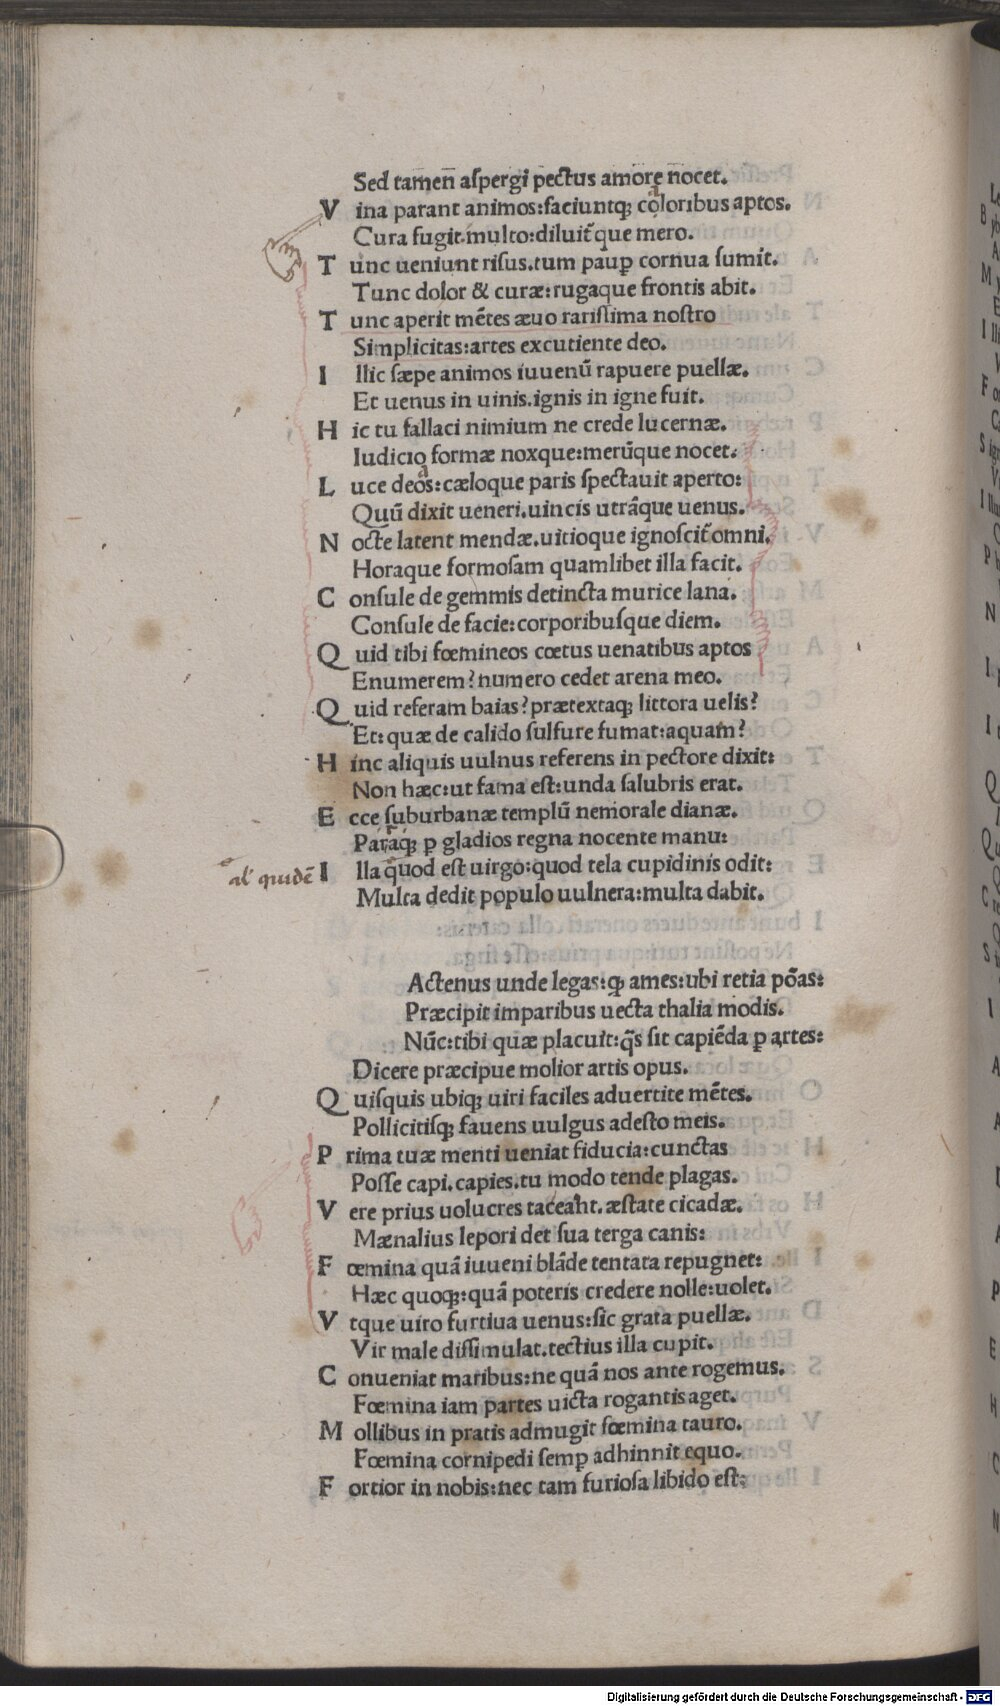 Sed tamen aſpergi pectus amore nocet.
V ina parant animos:faciuntq; coloribus aptos.
Cura fugit multo:diluit̃que mero.
T unc ueniunt riſus.tum paup̱ cornua ſumit.
Tunc dolor & curæ:rugaque frontis abit.
T unc aperit mẽtes æuo rariſſima noſtro
Simplicitas:artes excutiente deo.
I llic ſæpe animos iuuenũ rapuere puellæ.
Et uenus in uinis.ignis in igne fuit.
H ic tu fallaci nimium ne crede lucernæ.
Iudicio formæ noxque:merũque nocet.
L uce deos:cæloque paris ſpectauit aperto:
Quũ dixit ueneri.uincis utrãque uenus.
N octe latent mendæ.uitioque ignoſcit̃ omni.
Horaque formoſam quamlibet illa facit.
C onſule de gemmis detincta murice lana.
Conſule de facie:corporibuſque diem.
Q uid tibi fœmineos cœtus uenatibus aptos
Enumerem?numero cedet arena meo.
Q uid referam baias?prætextaq; littora uelis?
Et:quæ de calido ſulfure fumat:aquam?
H inc aliquis uulnus referens in pectore dixit:
Non hæc:ut fama eſt:unda ſalubris erat.
E cce ſuburbanæ templũ nemorale dianæ.
Partaq; p̱ gladios regna nocente manu:
al' quidẽ I lla quod eſt uirgo:quod tela cupidinis odit:
Multa dedit populo uulnera:multa dabit.
Actenus unde legas:q̃ ames:ubi retia põas:
Præcipit imparibus uecta thalia modis.
Nũc:tibi quæ placuit:q̃s ſit capiẽda p̱ artes:
Dicere præcipue molior artis opus.
Q uiſquis ubiq; uiri faciles aduertite mẽtes.
Pollicitiſq; fauens uulgus adeſto meis.
P rima tuæ menti ueniat fiducia:cunctas
Poſſe capi.capies.tu modo tende plagas.
V ere prius uolucres taceant.æſtate cicadæ.
Mænalius lepori det ſua terga canis:
F œmina quã iuueni blãde tentata repugnet:
Hæc quoq;:quã poteris credere nolle:uolet.
V tque uiro furtiua uenus:ſic grata puellæ.
Vir male diſſimulat.tectius illa cupit.
C onueniat maribus:ne quã nos ante rogemus.
Fœmina iam partes uicta rogantis aget.
M ollibus in pratis admugit fœmina tauro.
Fœmina cornipedi ſemp̱ adhinnit equo.
F ortior in nobis:nec tam furioſa libido eſt:
Digitalisierung gefördert durch die Deutsche Forschungsgemeinschaft - DFG